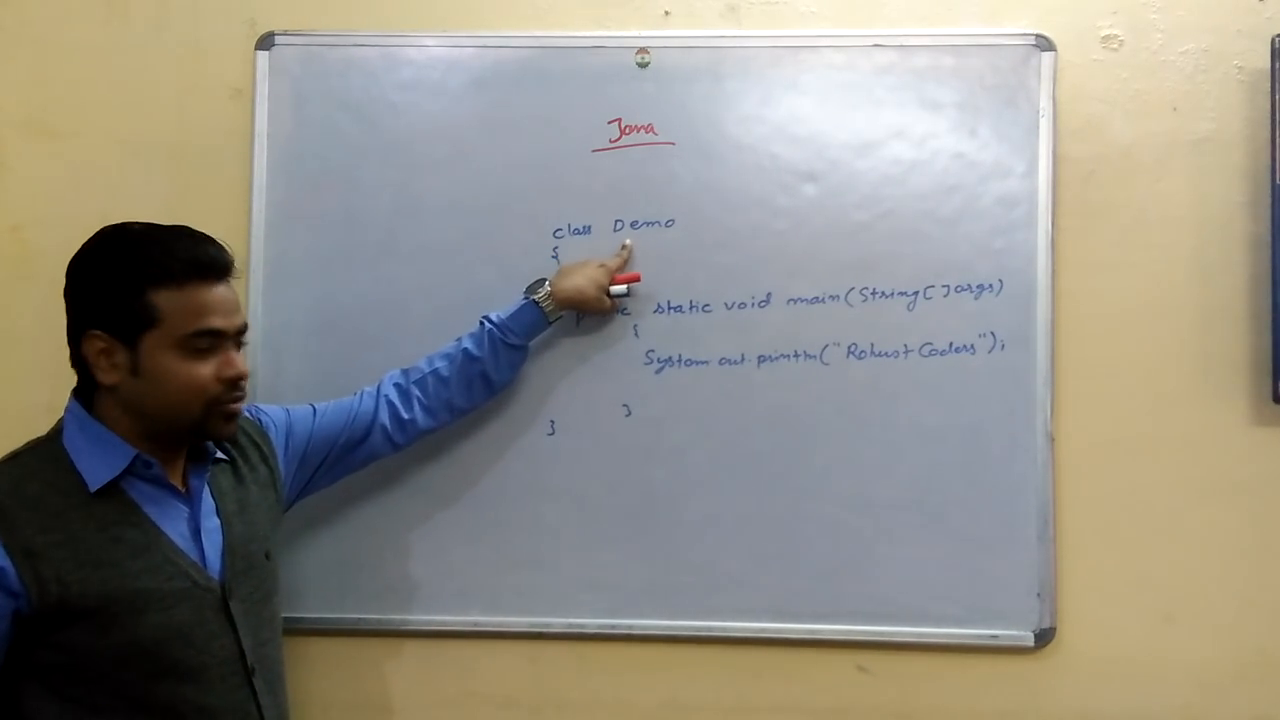 Java
class Demo
{
static void main(String[] args)
{
System.out.println("Robust Coders");
}
}